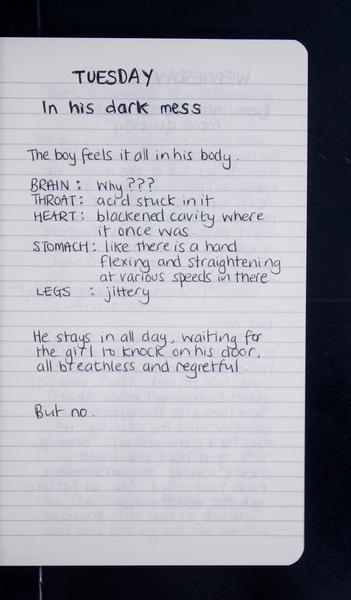 TUESDAY
In his dark mess
The boy feels it all in his body.
BRAIN : Why ???
THROAT: acid stuck in it
HEART: blackened cavity where
it once was.
STOMACH: like there is a hand
flexing and straightening
at various speeds in there.
LEGS : jittery
He stays in all day, waiting for
the girl to knock on his door,
all breathless and regretful.
But no.